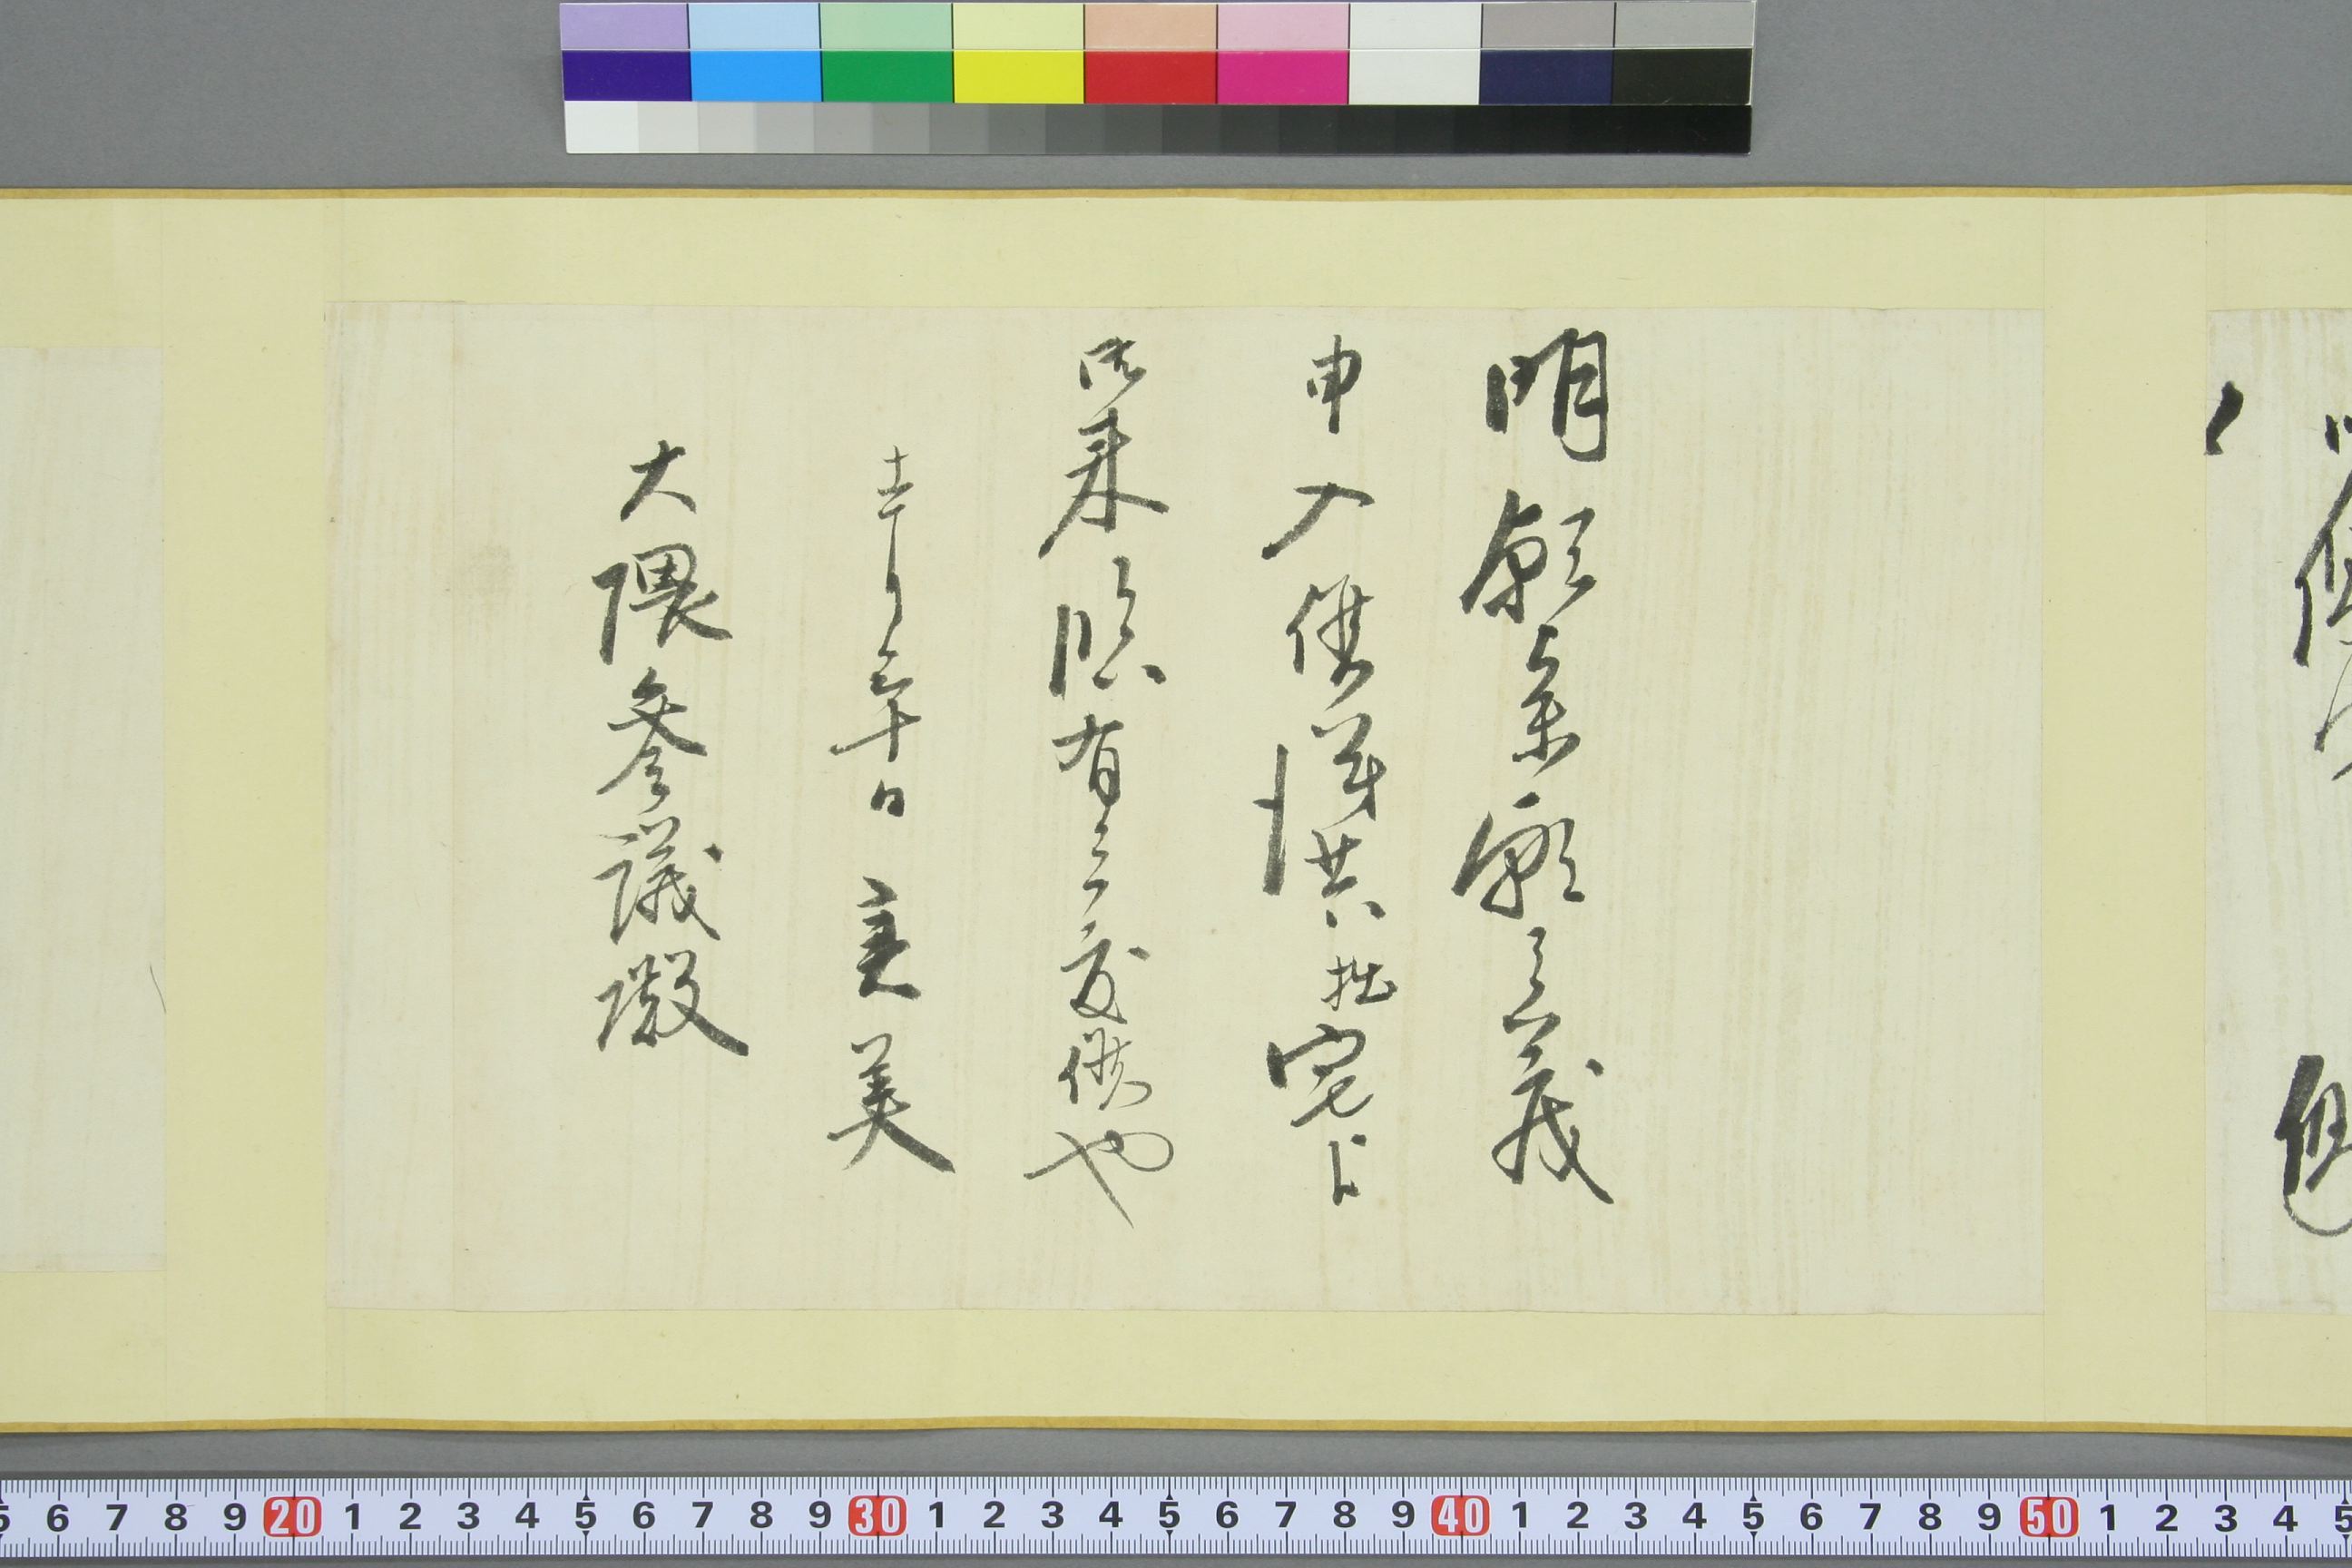 明
願之義
申入候得共拙宅
御来臨有之度候也
日 実美
大隈参議殿
6 7 8 9 20 1 2 3 4 5 6 7 8 9 30 1 2 3 4 5 6 7 8 9 40 1 2 3 4 5 6 7 8 9 50 1 2 3 4 5